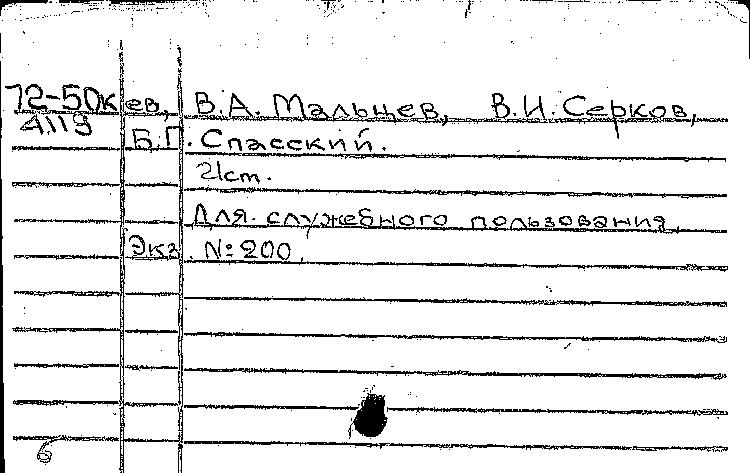 72-50кев, В.А. Мальцев, В.И. Серков,
4119 Б.Г. Спасский.
21 cm.
Для служебного пользования.
Экз. № 200.
6